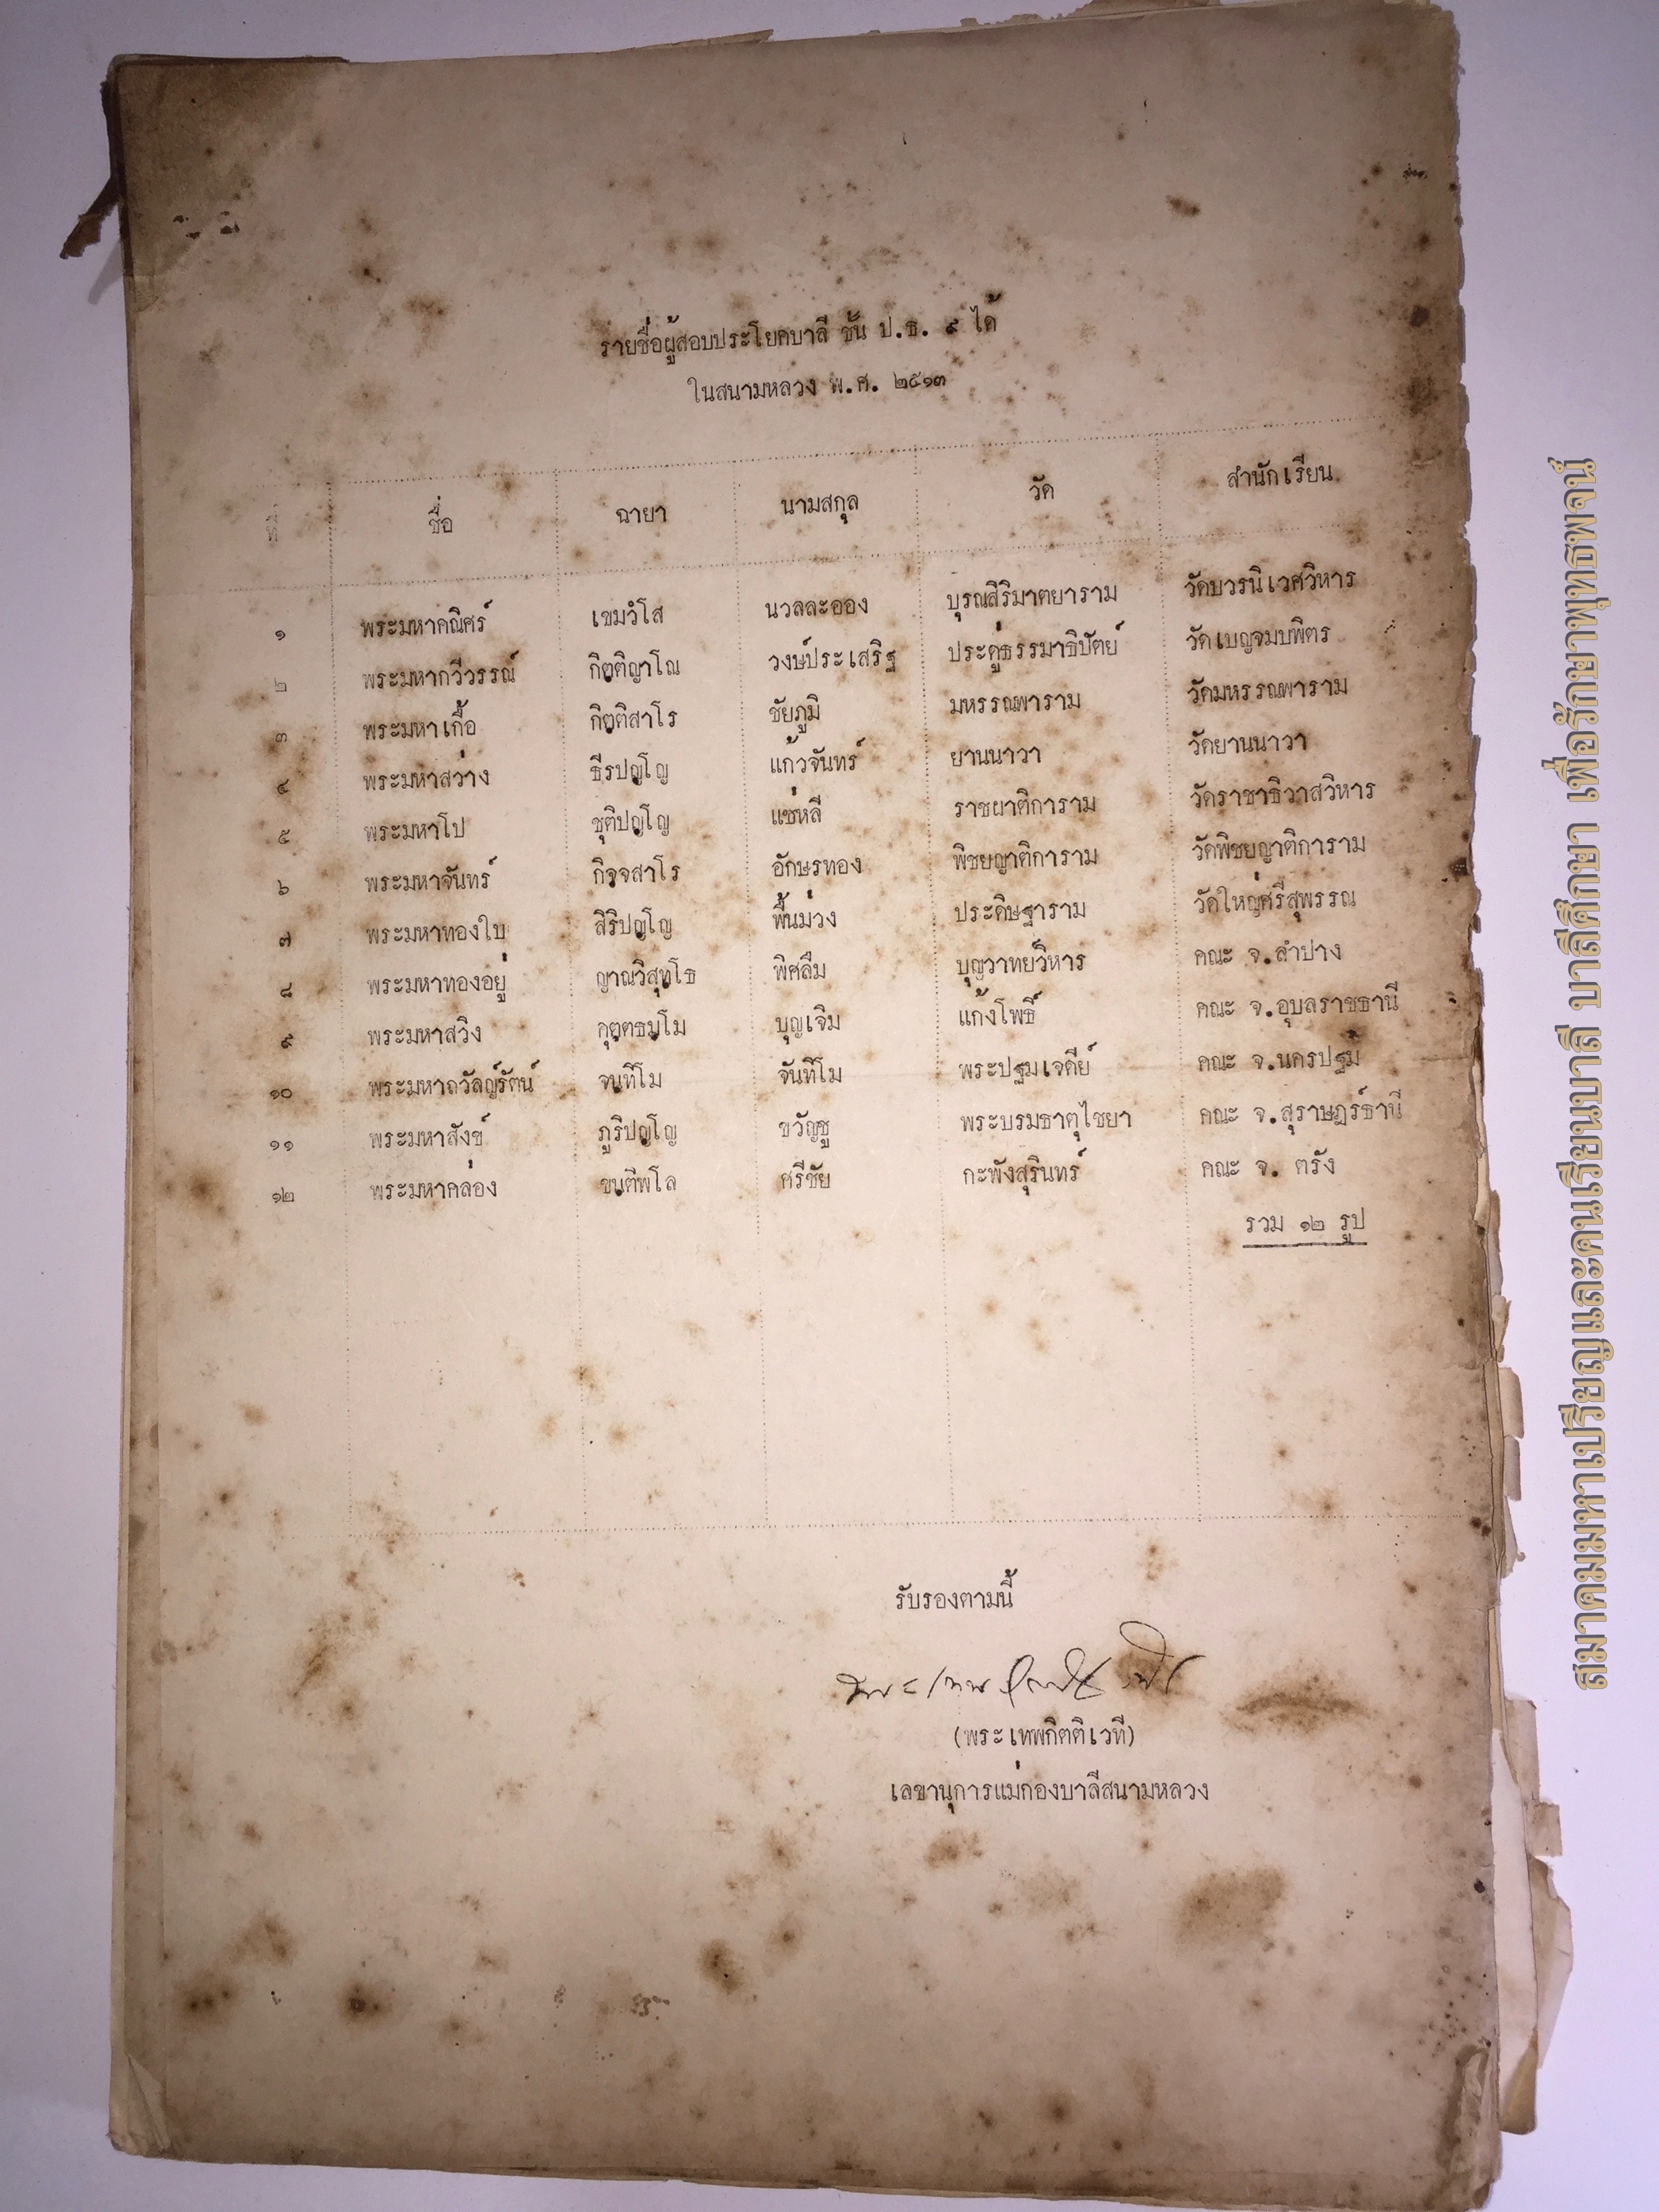 รายชื่อผู้สอบประโยคบาลี ชั้น ป.ธ. ๙ ได้
ในสนามหลวง พ.ศ. ๒๕๑๓
ที่ ชื่อ ฉายา นามสกุล วัด สำนักเรียน
๑ พระมหาคณิศร์ เขมวํโส นวลละออง บุรณสิริมาตยาราม วัดบวรนิเวศวิหาร
๒ พระมหากวีวรรณ์ กิตฺติญาโณ วงษ์ประเสริฐ ประดู่ธรรมาธิปัตย์ วัดเบญจมบพิตร
๓ พระมหาเกื้อ กิตฺติสาโร ชัยภูมิ มหรรณพาราม วัดมหรรณพาราม
๔ พระมหาสว่าง ธีรปญฺโญ แก้วจันทร์ ยานนาวา วัดยานนาวา
๕ พระมหาโป ชุติปญฺโญ แซ่หลี ราชผาติการาม วัดราชาธิวาสวิหาร
๖ พระมหาจันทร์ กิจฺจสาโร อักษรทอง พิชยญาติการาม วัดพิชยญาติการาม
๗ พระมหาทองใบ สิริปญฺโญ พื้นม่วง ประดิษฐาราม วัดใหญ่ศรีสุพรรณ
๘ พระมหาทองอยู่ ญาณวิสุทฺโธ พิศลืม บุญวาทย์วิหาร คณะ จ.ลำปาง
๙ พระมหาสวิง คุตฺตธมฺโม บุญเจิม แก้งโพธิ์ คณะ จ.อุบลราชธานี
๑๐ พระมหาถวัลญ์รัตน์ จนฺทิโม จันทิโม พระปฐมเจดีย์ คณะ จ.นครปฐม
๑๑ พระมหาสังข์ ภูริปญฺโญ ขวัญชู พระบรมธาตุไชยา คณะ จ.สุราษฎร์ธานี
๑๒ พระมหาคล่อง ขนฺติพโล ศรีชัย กะพังสุรินทร์ คณะ จ. ตรัง
รวม ๑๒ รูป
รับรองตามนี้
(พระเทพกิตติเวที)
เลขานุการแม่กองบาลีสนามหลวง
สมาคมมหาเปรียญและคนเรียนบาลี บาลีศึกษา เพื่อรักษาพุทธพจน์